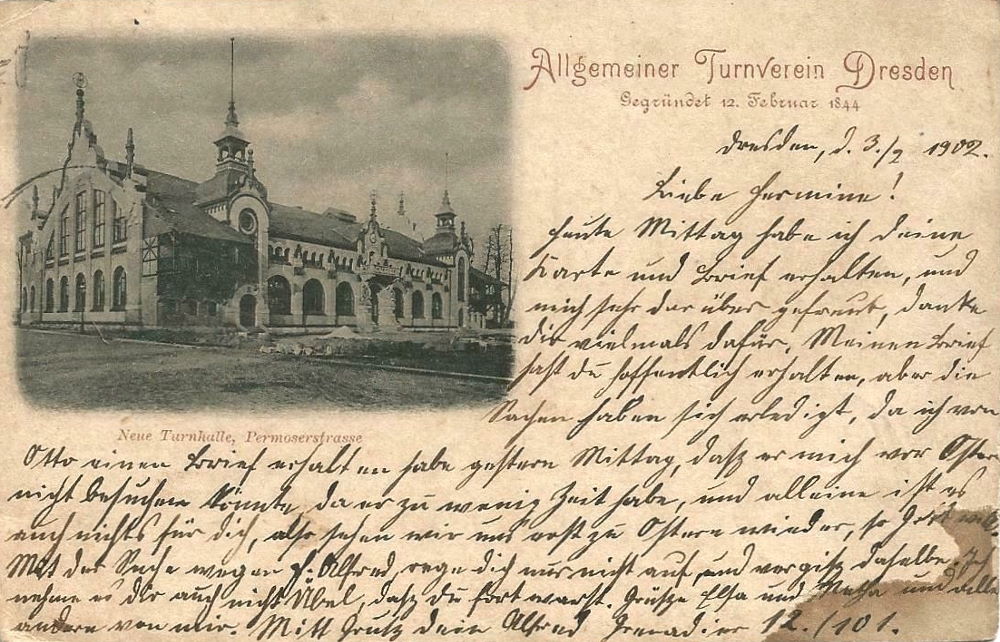 Allgemeiner Turnverein Dresden
Gegründet 12. Februar 1844
Dresden, d. 3./2 1902.
Liebe Hermine!
Heute Mittag habe ich deine
Karte und Brief erhalten, und
mich sehr dar über gefreut, danke
dir vielmals dafür, Meinen Brief
hast du hoffentlich erhalten, aber die
Sachen haben sich erledigt, da ich von
Neue Turnhalle, Permoserstrasse
Otto einen Brief erhalten habe gestern Mittag, dasz er mich vor Ostern
nicht besuchen könnte, da er zu wenig Zeit habe, und alleine ist es
auch nichts für dich, also sehen wir uns erst zu Ostern wieder, so Gott will.
Mit der Sache wegen Alfred, rege dich nur nicht auf, und vergisz daselbe. Ich
nehme es dir auch nicht Übel, dasz du fort warst. Grüsze Elsa und und alle
andern von mir. Mitt Grusz dein Alfred Grenadier 12./101.